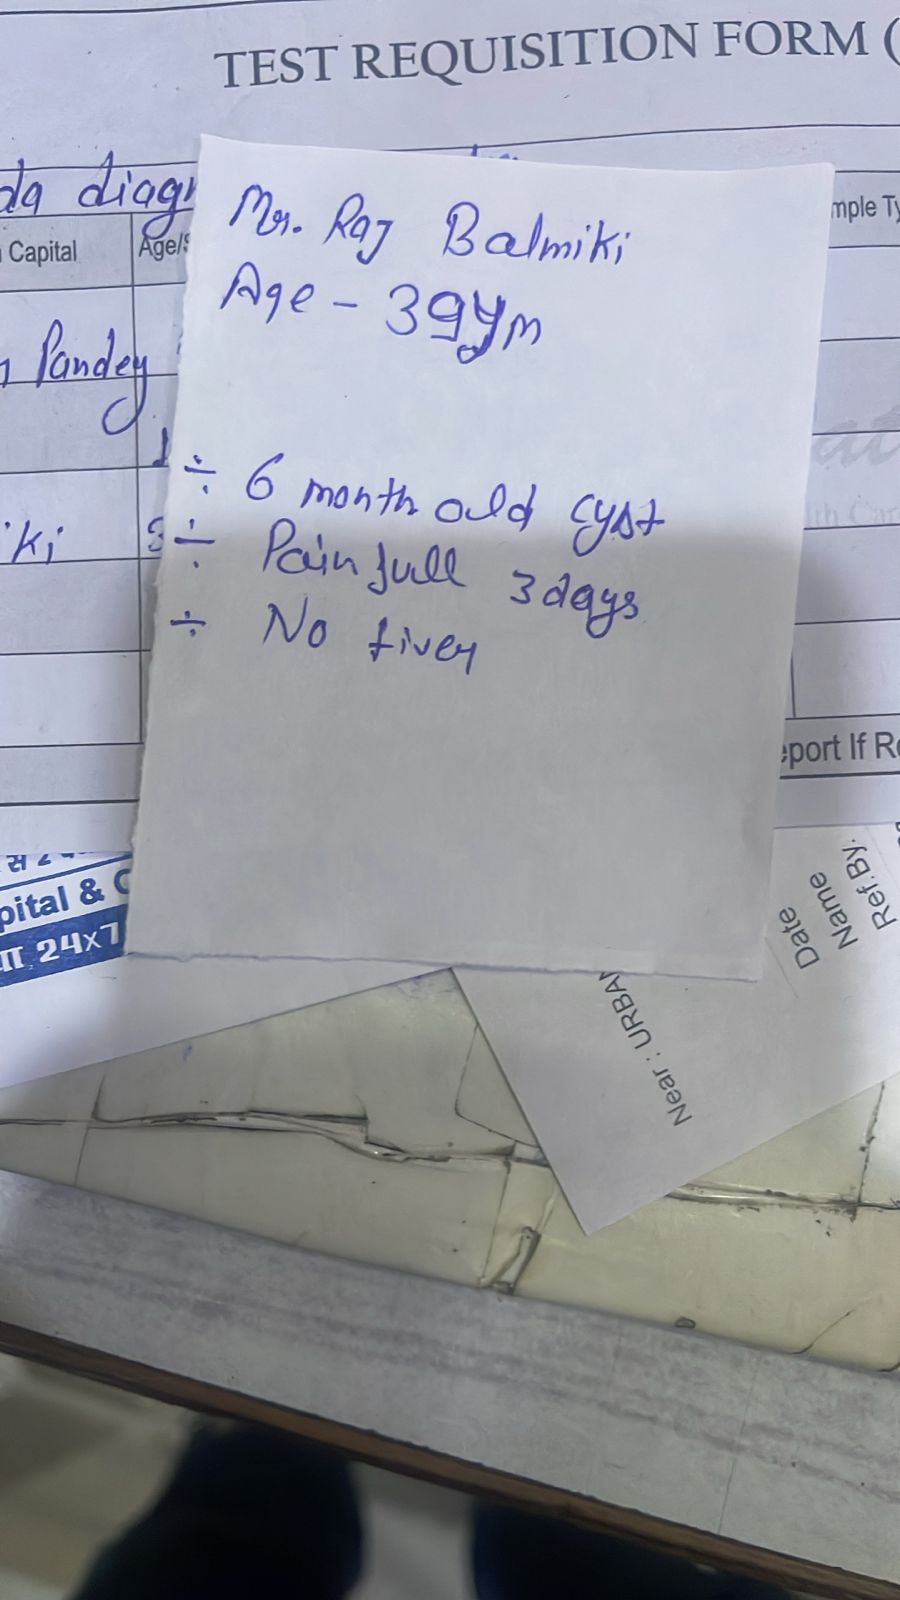 TEST REQUISITION FORM (
da diagn
mple Ty
Capital
Age/S
Mr. Raj Balmiki
Age - 39ym
Pandey
÷ 6 month old cyst
iki
÷ Painfull 3 days
÷ No fiver
eport If Re
pital & C
24x7
Date
Name
Ref.By.
Near : URBAN